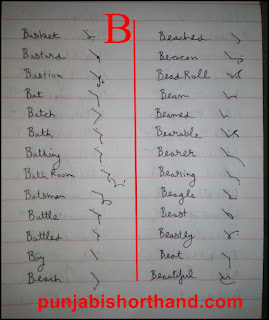 B
Busket
Bustard
Bustion
But
Batch
Bath
Bathing
Bath Room
Batsman
Battle
Battled
Bay
Beach
Beached
Beacon
Bead Roll
Beam
Beamed
Bearable
Bearer
Bearing
Beagle
Beast
Beastly
Beat
Beautiful
punjabishorthand.com